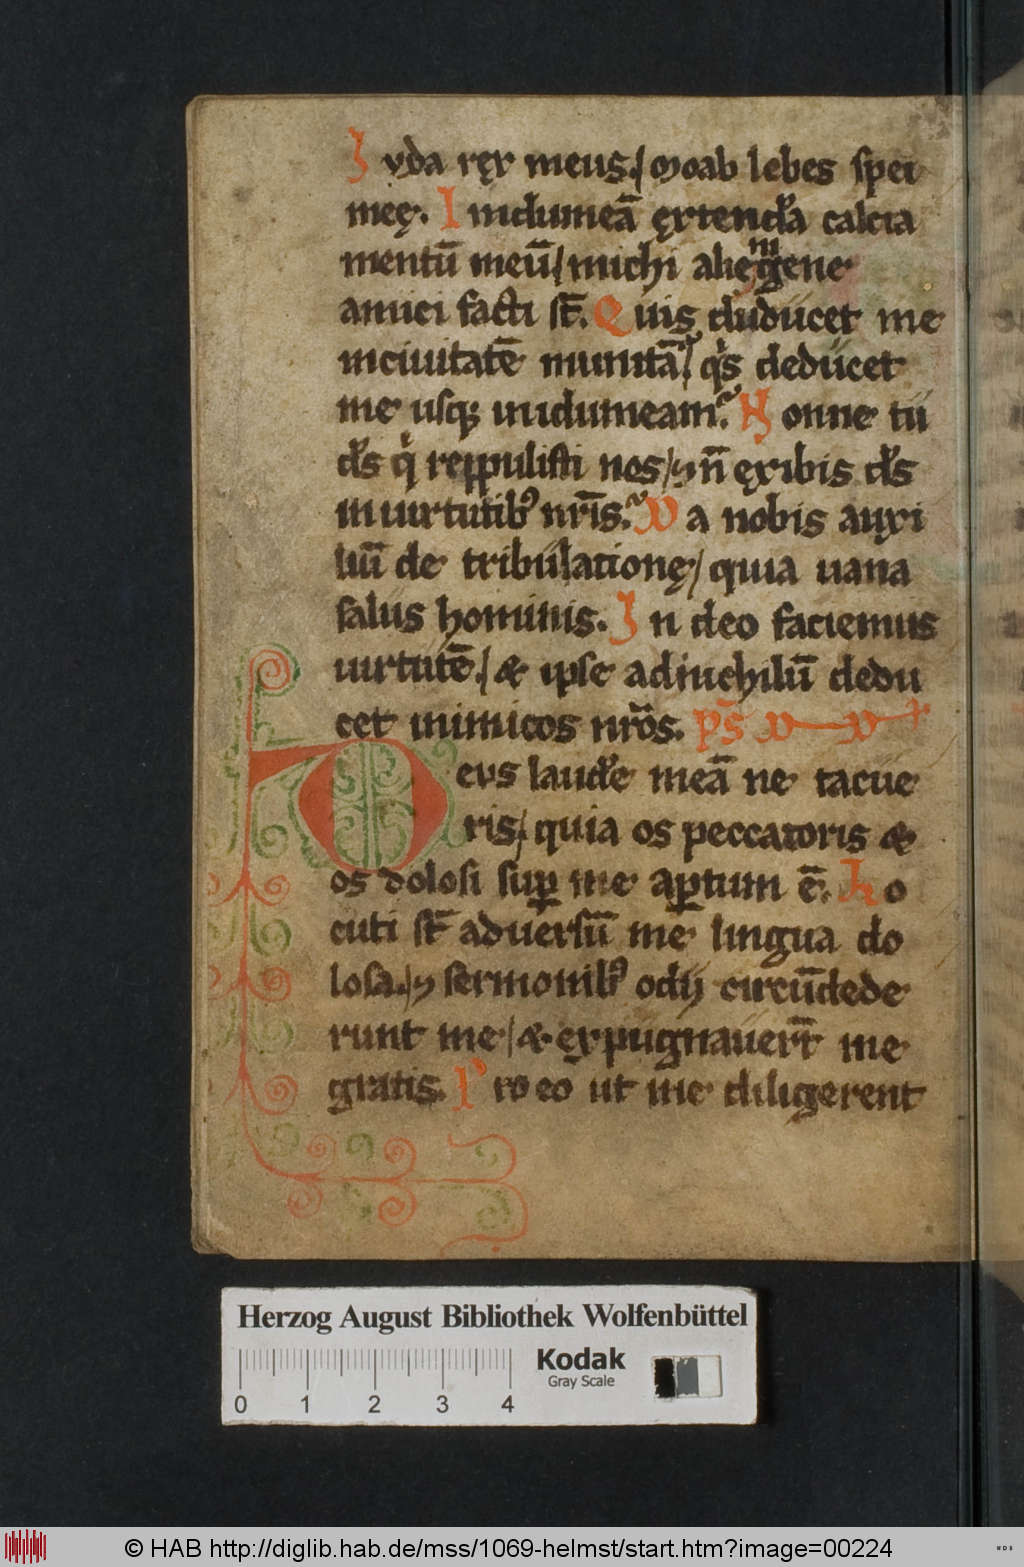 Iuda ręx meus./ moab lebes spei
meę. In idumeā ęxtendā calcia
mentū meū/ michi alięnigene
amici facti st̄. Quis diducet me
inciuitatē munitā/ qͥs deducet
me usqꝫ inidumeam. Nonne tu
ds̄ qͥ reppulisti nos/ ⁊ n̄ ęxibis ds̄
in uirtutibꝰ nrīs. Da nobis auxi
liū de tribulationę/ quia uana
salus hominis. In deo faciemus
uirtutē./ & ipse adnichilū dedu
cet inimicos nrōs. ps̄
Deus laudē meā ne tacue
ris/ quia os peccatoris &
os dolosi suꝑ me aꝑtum ē. Lo
cuti st̄ aduersū me lingua do
losa./ ⁊ sermonibꝰ odij circūdede
runt me/ & expugnauert̄ me
gratis. Pro eo ut me diligerent
Herzog August Bibliothek Wolfenbüttel
Kodak
Gray Scale
0 1 2 3 4
© HAB http://diglib.hab.de/mss/1069-helmst/start.htm?image=00224